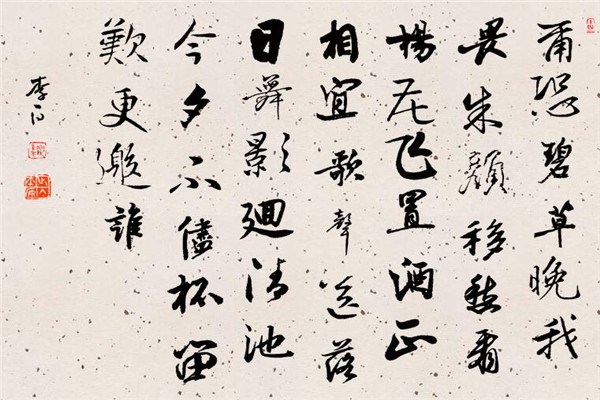 爾恐碧草晚我
畏朱顏移愁看
楊花飞置酒正
相宜歌聲送落
日舞影廻清池
今夕不儘杯留
歡更邀誰
李白